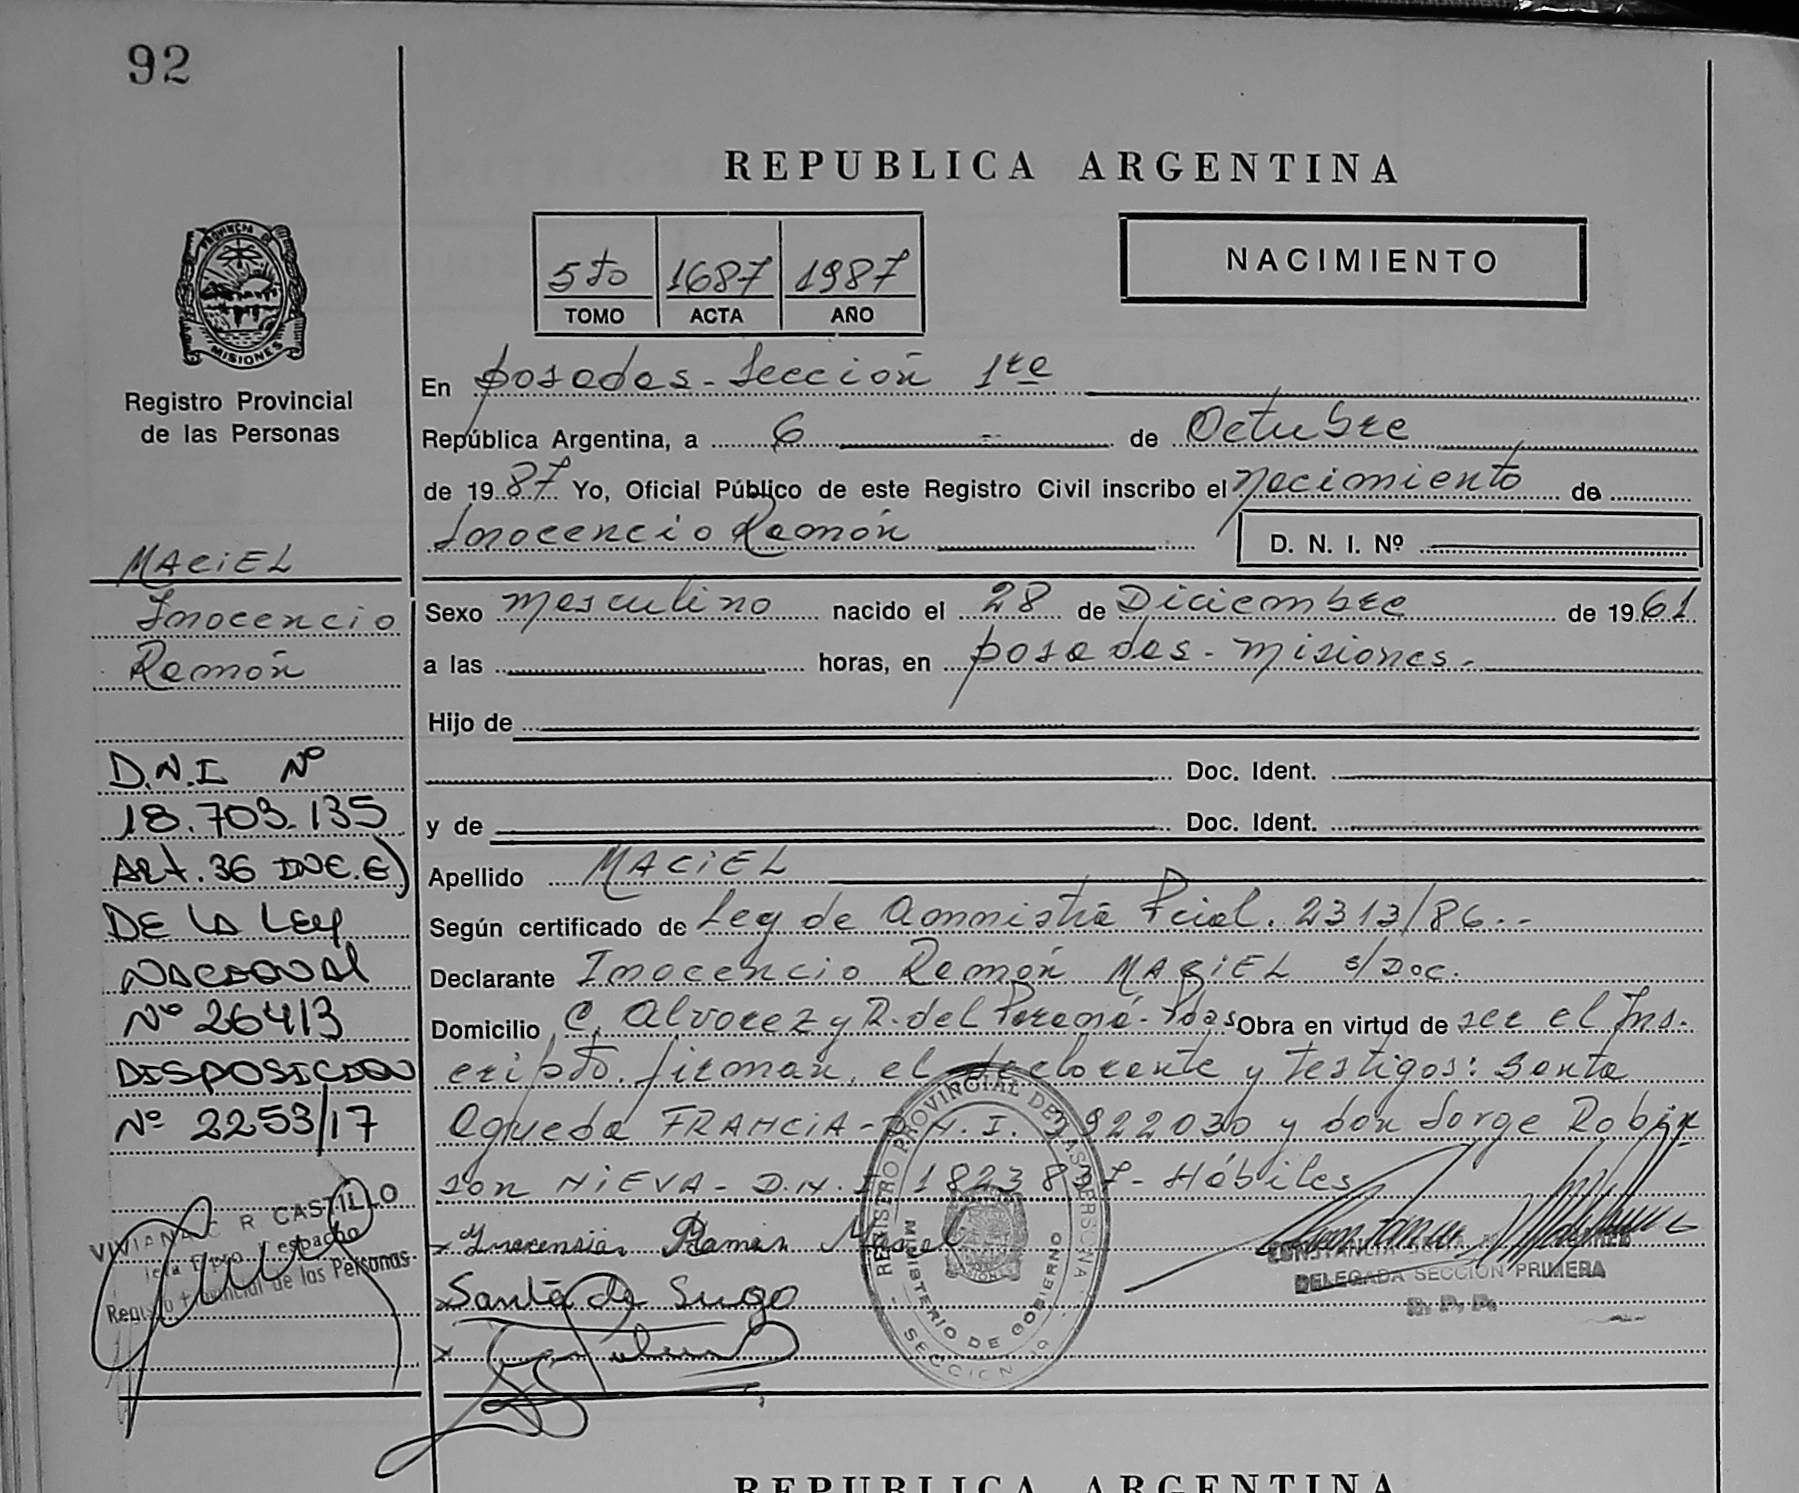 92
REPUBLICA ARGENTINA
5to 1687 1987
TOMO ACTA AÑO
NACIMIENTO
PROVINCIA DE
MISIONES
Registro Provincial
de las Personas
En Posadas - Sección 1ra
República Argentina, a 6 de Octubre
de 19 87 Yo, Oficial Público de este Registro Civil inscribo el Nacimiento de
Inocencio Ramón
D. N. I. Nº
MACIEL
Inocencio
Ramón
Sexo masculino nacido el 28 de Diciembre de 19 61
a las horas, en posadas - misiones.-
Hijo de
Doc. Ident.
y de Doc. Ident.
Apellido MACIEL
Según certificado de Ley de Amnistia Pcial. 2313/86.--
Declarante Inocencio Ramón MACIEL s/Doc.
Domicilio C. Alvarez y R. del Paraná - Pdas Obra en virtud de ser el Ins-
cripto. firman, el declarante y testigos: Santa
Agueda FRANCIA - D.N.I. 922030 y don Jorge Robin-
son NIEVA - D.N.I 1823837 - Hábiles
Inocensio Ramon Maciel
Santa de Sugo
D.N.I Nº
18.703.135
Art. 36 INC. E)
DE LA LEY
NACIONAL
Nº 26413
DISPOSICION
Nº 2253/17
VIVIANA C R CASTILLO
Registro Provincial de las Personas
REGISTRO PROVINCIAL DE LAS PERSONAS
MINISTERIO DE GOBIERNO
SECCION
MISIONES
DELEGADA SECCION PRIMERA
R. P. P.
REPUBLICA ARGENTINA